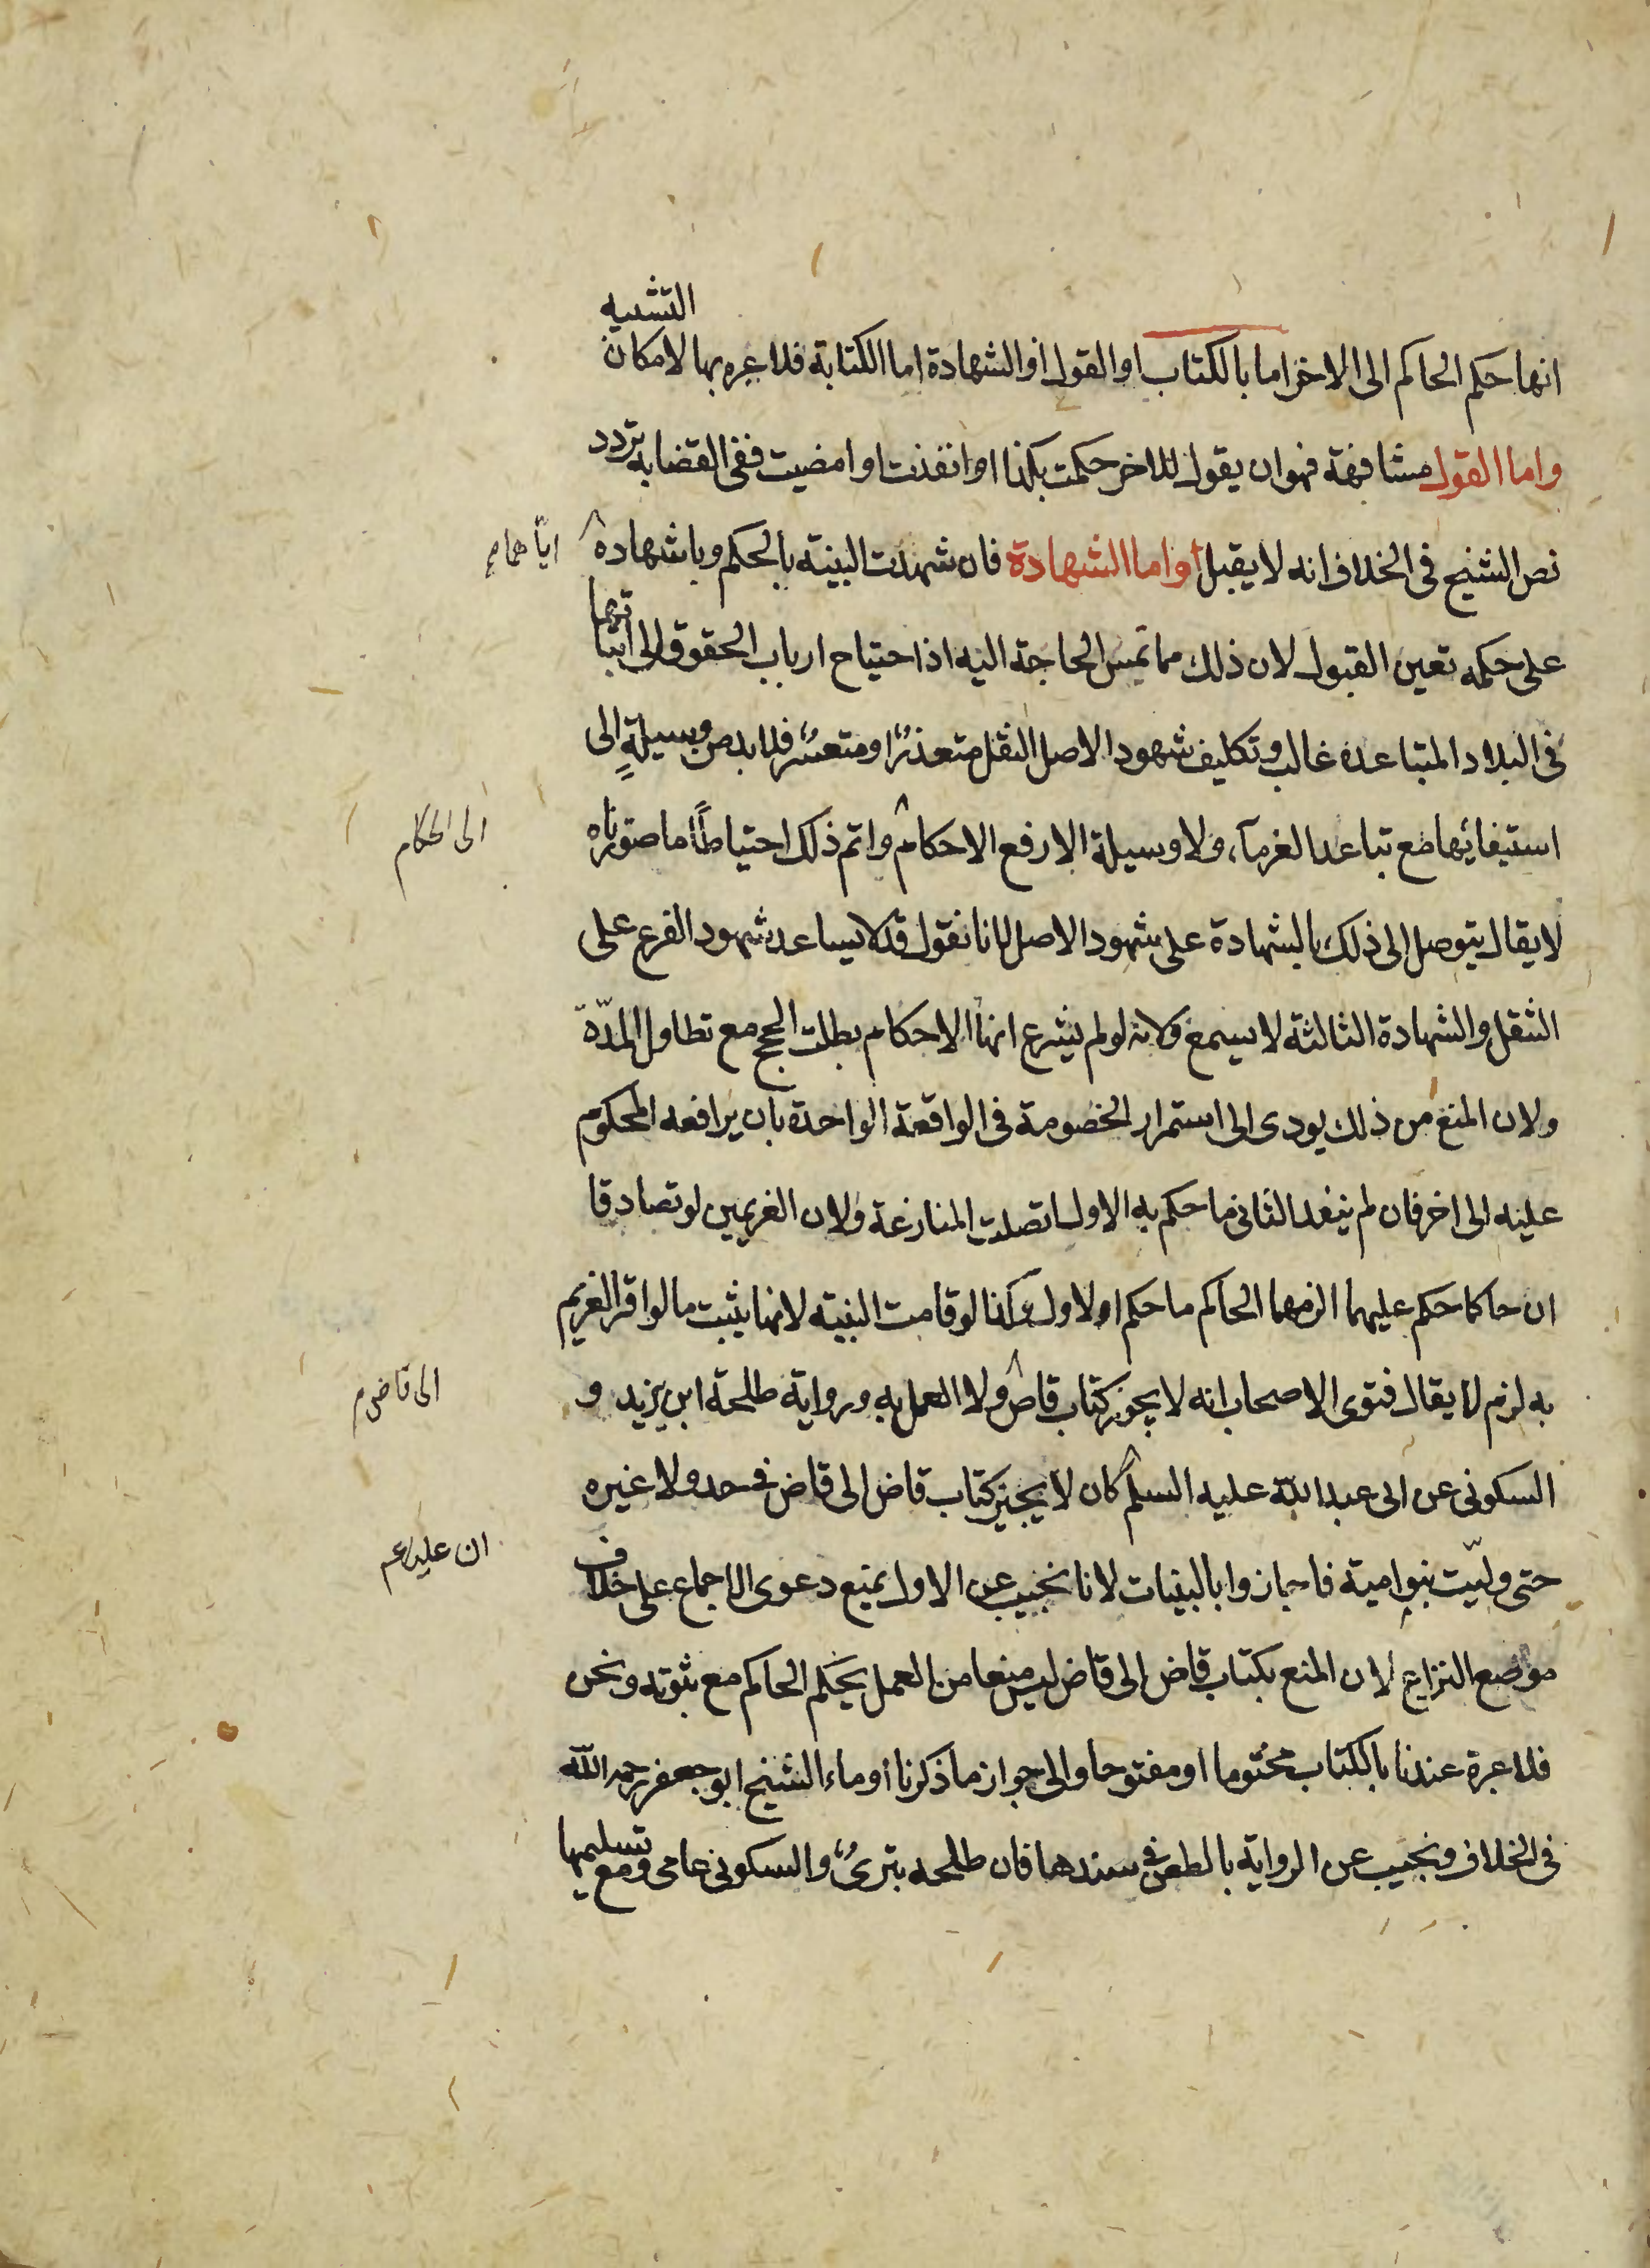 انها حكم الحاكم الى الاخر اما بالكتاب او القول او الشهادة اما الكتابة فلا عبره بها لامكان التشبيه
واما القول مشافهة فهو ان يقول للاخر حكمت بكذا او انفذت او امضيت ففى القضا به تردد
نص الشيخ فى الخلاف انه لا يقبل واما الشهادة فان شهدت البينة بالحكم وباشهاده
اياهما م
على حكمه تعين القبول لان ذلك مما تمس الحاجة اليه اذ احتياج ارباب الحقوق الى اثباتها
فى البلاد المتباعدة غالب وتكليف شهود الاصل التنقل متعذرٌ او متعسرٌ فلا بد من وسيلةٍ الى
استيفائها مع تباعد الغرمآء ولا وسيلة الا رفع الاحكام واتم ذلك احتياطاً ما صورناه
الى الحكام
لا يقال يتوصل الى ذلك بالشهادة على شهود الاصل لانا نقول قد لا يساعد شهود الفرع على
التنقل والشهادة الثالثة لا يسمع ولانه لو لم يشرع انها الاحكام بطلت الحجج مع تطاول المدّة
ولان المنع من ذلك يودى الى استمرار الخصومة فى الواقعة الواحدة بان يرافعه المحكوم
عليه الى اخر فان لم ينفذ الثانى ما حكم به الاول اتصلت المنازعة ولان الغريمين لو تصادقا
ان حاكما حكم عليهما الزمهما الحاكم ما حكم الاول وكذا لو قامت البينة لانها يثبت ما لو اقر الغريم
به لزم لا يقال فتوى الاصحاب انه لا يجوز كتاب قاض ولا العمل به ورواية طلحة ابن يزيد و
الى قاض م
السكونى عن ابى عبد الله عليه السلم كان لا يجيز كتاب قاض الى قاض فى حد ولا غيره
ان عليا ع م
حتى وليّت بنو امية فاجازوا بالبينات لانا نجيب عن الاول بمنع دعوى الاجماع على خلاف
موضع النزاع لان المنع بكتاب قاض الى قاض ليس منعا من العمل بحكم الحاكم مع ثبوته ونحن
فلا عبرة عندنا بالكتاب مختوما او مفتوحا والى جواز ما ذكرنا اوماء الشيخ ابو جعفر رحمه الله
فى الخلاف ونجيب عن الرواية بالطعن فى سندها فان طلحه بترىٌ والسكونى عامى ومع تسليمها